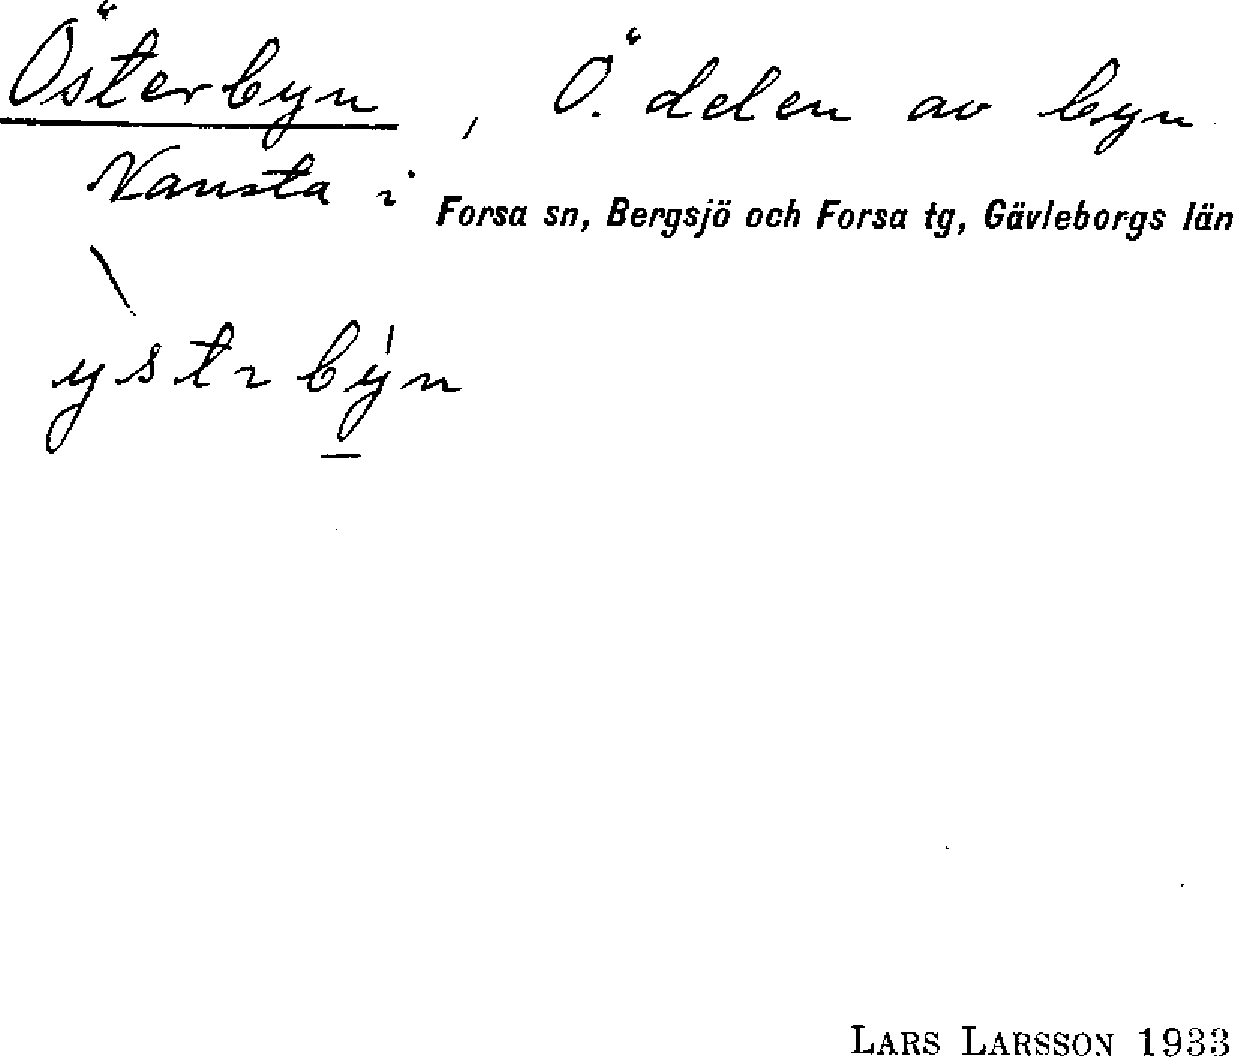 Österbyn, Ö. delen av byn
Nansta i Forsa sn, Bergsjö och Forsa tg, Gävleborgs län
ystrbýn
LARS LARSSON 1933